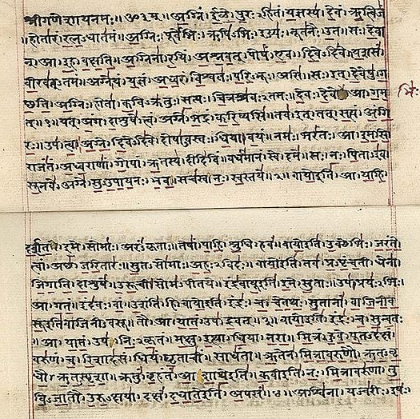 श्रीगणेशायनमः॥ॐ३म्॥ अग्निं। ईळे। पुरःऽहितं। यज्ञस्य। देवं। ऋत्विजं
।होतारं। रत्नऽधातमं॥ अग्निः। पूर्वेभिः। ऋषिऽभिः। ईड्यः। नूतनैः। उत। सः। देवान्
।आ। इह। वक्षति॥ अग्निना। रयिं। अश्नवत्। पोषं। एव। दिवेऽदिवे। यशसं।
वीरवत्ऽतमं॥ अग्ने। यं। यज्ञं। अध्वरं। विश्वतः। परिऽभूः। असि। सः। इत्। देवेषु। ग
च्छति॥ अग्निः। होता। कविऽक्रतुः। सत्यः। चित्रश्रवःऽतमः। देवः। देवेभिः। आ। गम
त्॥१॥ यत्। अंग। दाशुषे। त्वं। अग्ने। भद्रं। करिष्यसि। तव। इत्। तत्। सत्यं। अंगि
रः॥ उप। त्वा। अग्ने। दिवेऽदिवे। दोषाऽवस्तः। धिया। वयं। नमः। भरंतः। आ। इमसि॥
राजंतं। अध्वराणां। गोपां। ऋतस्य। दीदिविं। वर्धमानं। स्वे। दमे॥ सः। नः। पिताऽइव।
सूनवे। अग्ने। सुऽउपायनः। भव। सचस्व। नः। स्वस्तये॥२॥ वायो इति। आ। याहि।
दर्शत। इमे। सोमाः। अरंऽकृताः। तेषां। पाहि। श्रुधि। हवं॥ वायो इति। उक्थेभिः। जरंते
त्वां। अच्छ। जरितारः। सुतऽसोमाः। अहःऽविदः॥ वायो इति। तव। प्रऽपृंचती। धेना।
जिगाति। दाशुषे। उरूची। सोमऽपीतये॥ इंद्रवायू इति। इमे। सुताः। उप। प्रयःऽभिः।
आ। गतं। इंदवः। वां। उशंति। हि॥ वायो इति। इंद्रः। च। चेतथः। सुतानां। वाजिनीव
सू इति वाजिनीऽवसू। तौ। आ। यातं। उप। द्रवत्॥३॥ वायो इति। इंद्रः। च। सुन्वतः
।आ। यातं। उप। निःऽकृतं। मक्षु। इत्था। धिया। नरा॥ मित्रं। हुवे। पूतऽदक्षं।
वरुणं। च। रिशादसं। धियं। घृताचीं। साधंता॥ ऋतेन। मित्रावरुणौ। ऋतऽवृ
धौ। ऋतऽस्पृशा। क्रतुं। बृहंतं। आशाथे इति॥ कवी इति। नः। मित्रावरुणा। तु
विऽजातौ। उरुऽक्षया। दक्षं। दधाते इति। अपसं॥४॥ अश्विना। यज्वरीः। इषः।